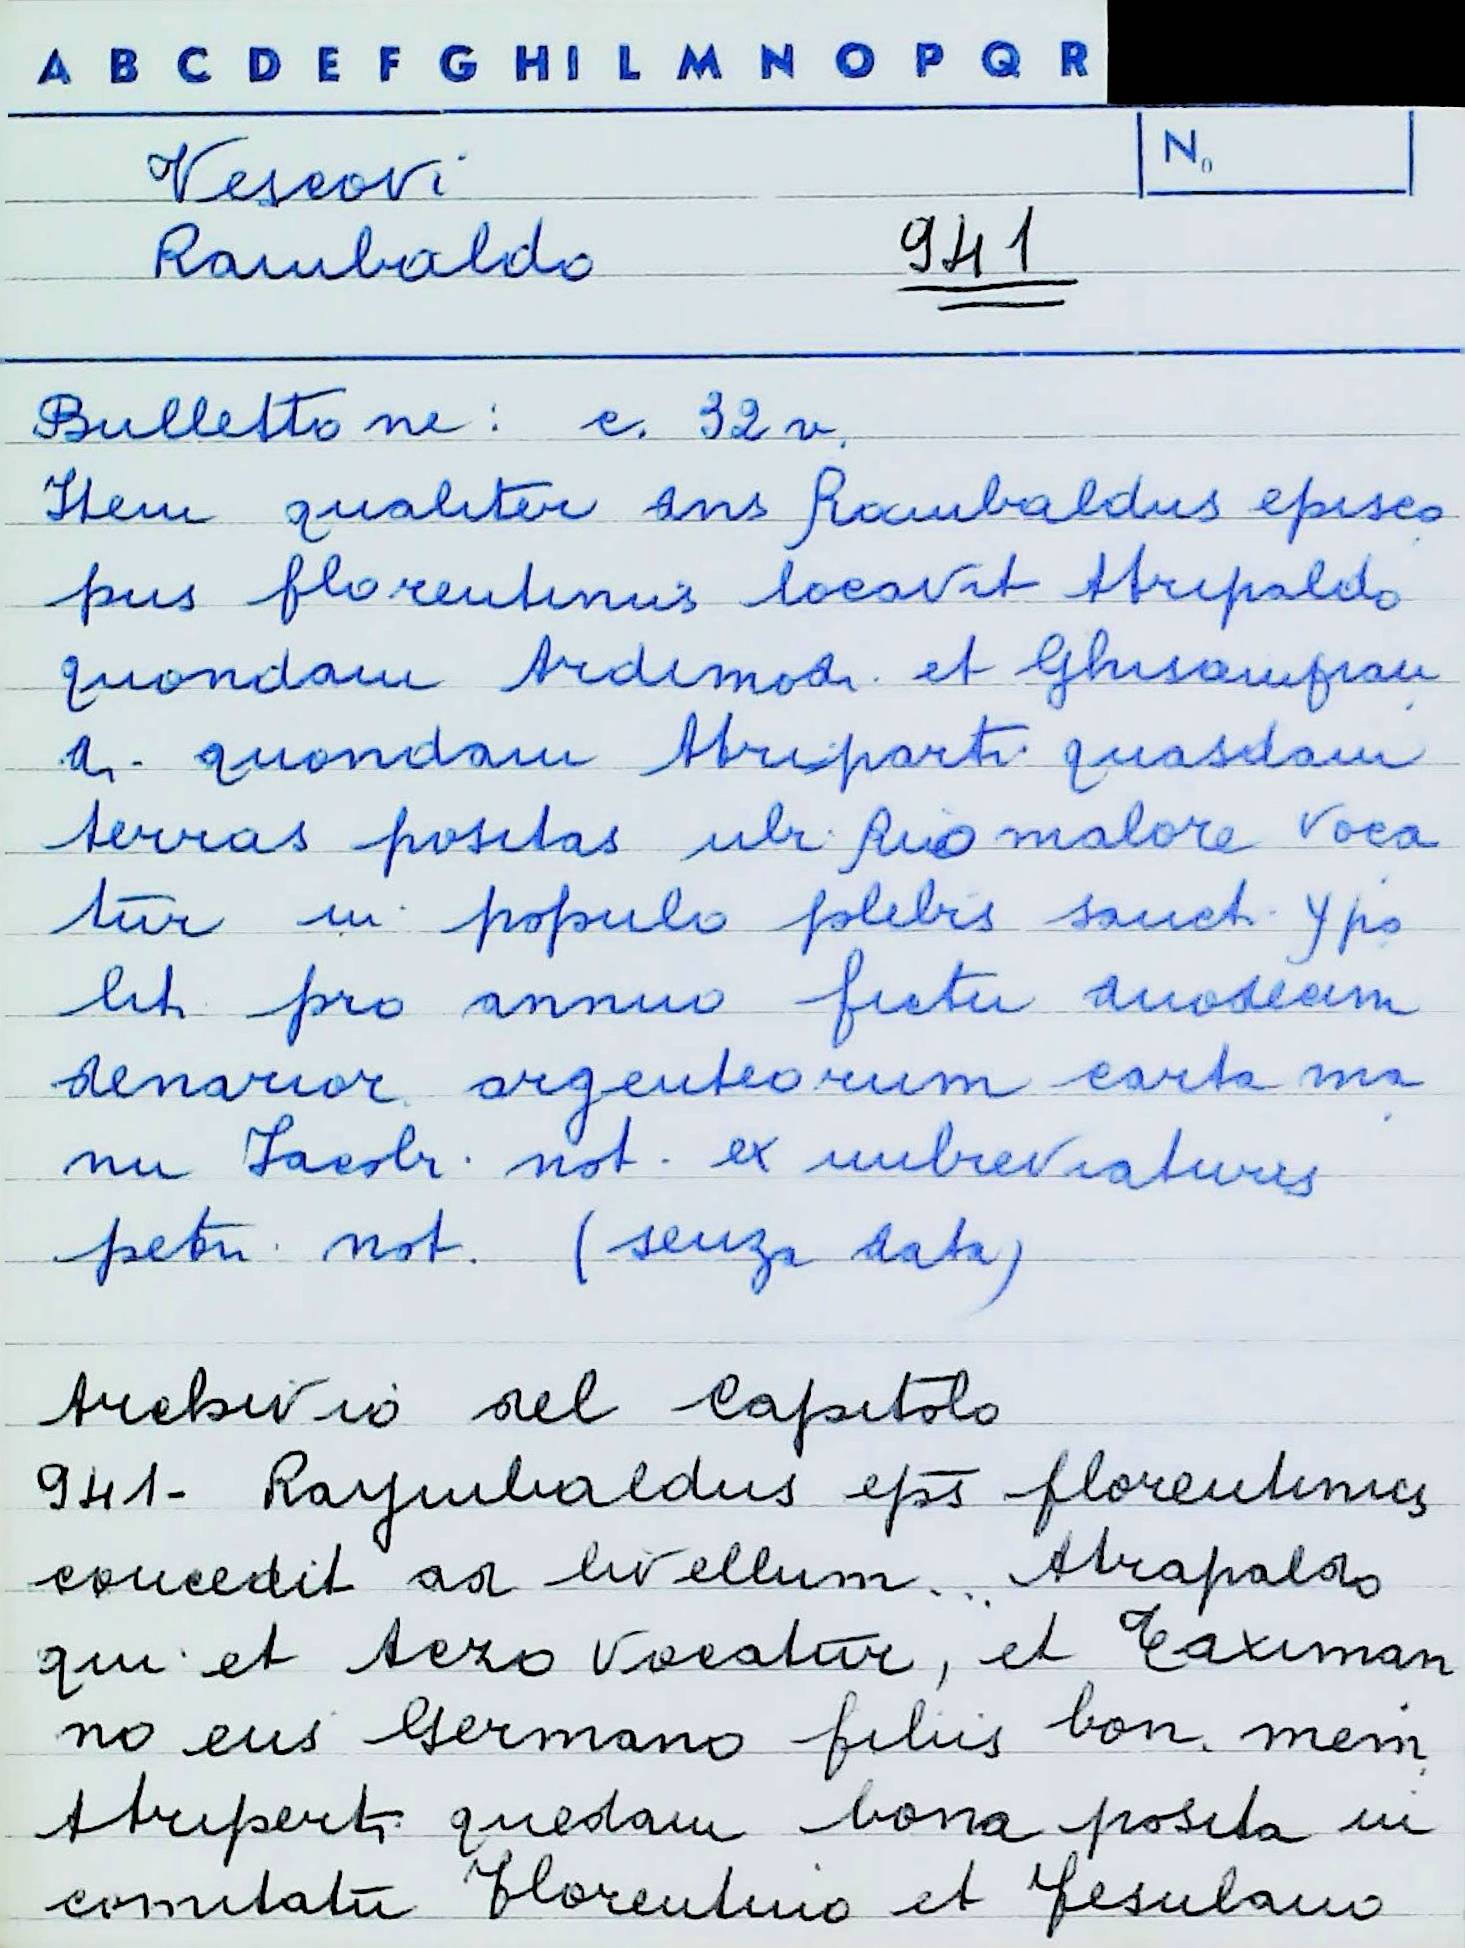 A B C D E F G H I L M N O P Q R
N.
Vescovi
Rambaldo 941
Bullettone: c. 32 v.
Item qualiter dns Rambaldus episco
pus florentinus locavit Atripaldo
quondam Ardimodi et Ghisamfran
di quondam Atriparti quasdam
terras positas ubi Rio malore voca
tur in populo plebis sancti Ypo
liti pro annuo fictu duodecim
denarior. argenteorum carta ma
nu Jacobi not. ex imbreviaturis
petri not. (senza data)
Archivio del Capitolo
941- Raymbaldus eps florentinus
concedit ad livellum... Atrapaldo
qui et Aczo vocatur, et Taximan
no eius Germano filiis bon. mem.
Atriperti quedam bona posita in
comitatu Florentino et Fesulano